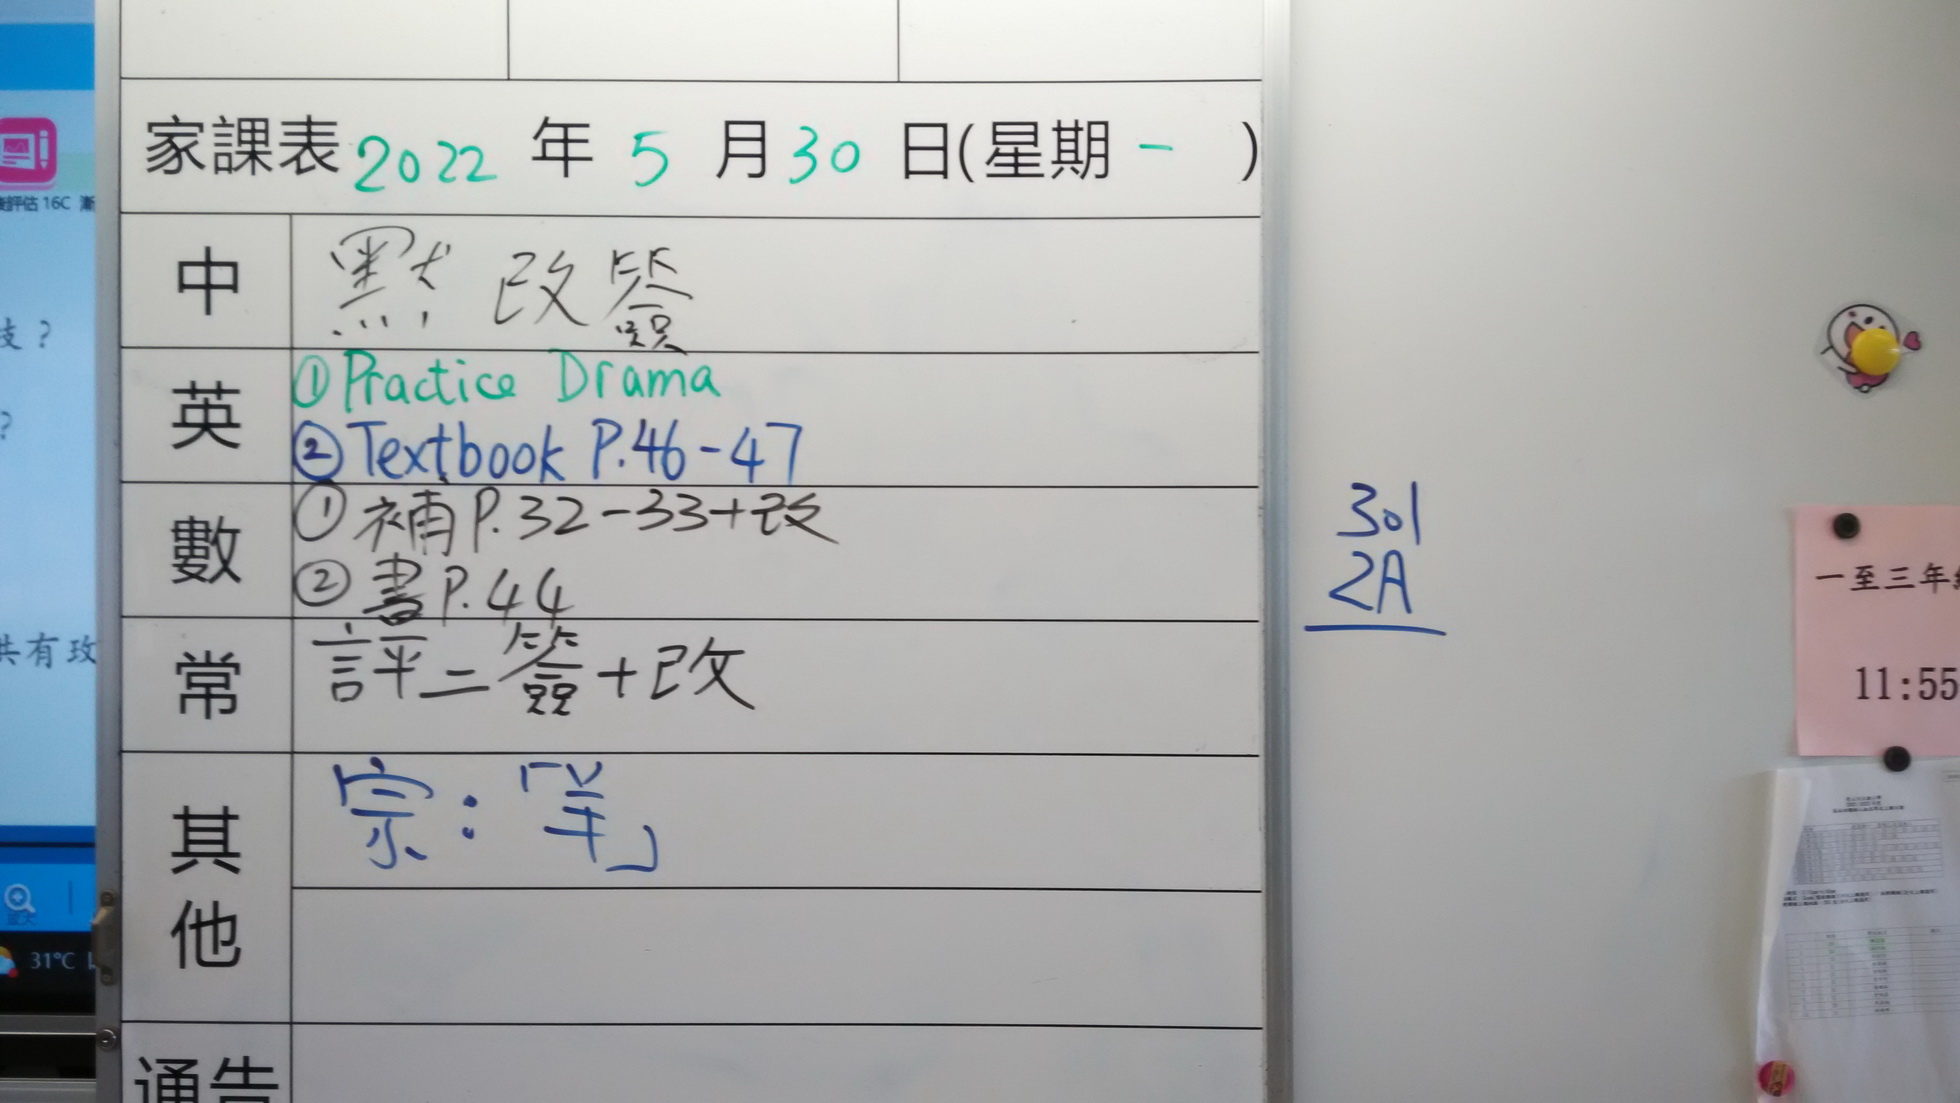 家課表 2022 年 5 月 30 日(星期 一 )
中 默 改簽
英 ① Practice Drama
② Textbook P.46-47
數 ① 補 P.32-33+改
② 書 P.44
常 評二簽+改
其他 宗：「羊」
通告
301
2A
一至三年
11:55
評估 16C 漸
技？
？
共有玫
放大
31°C